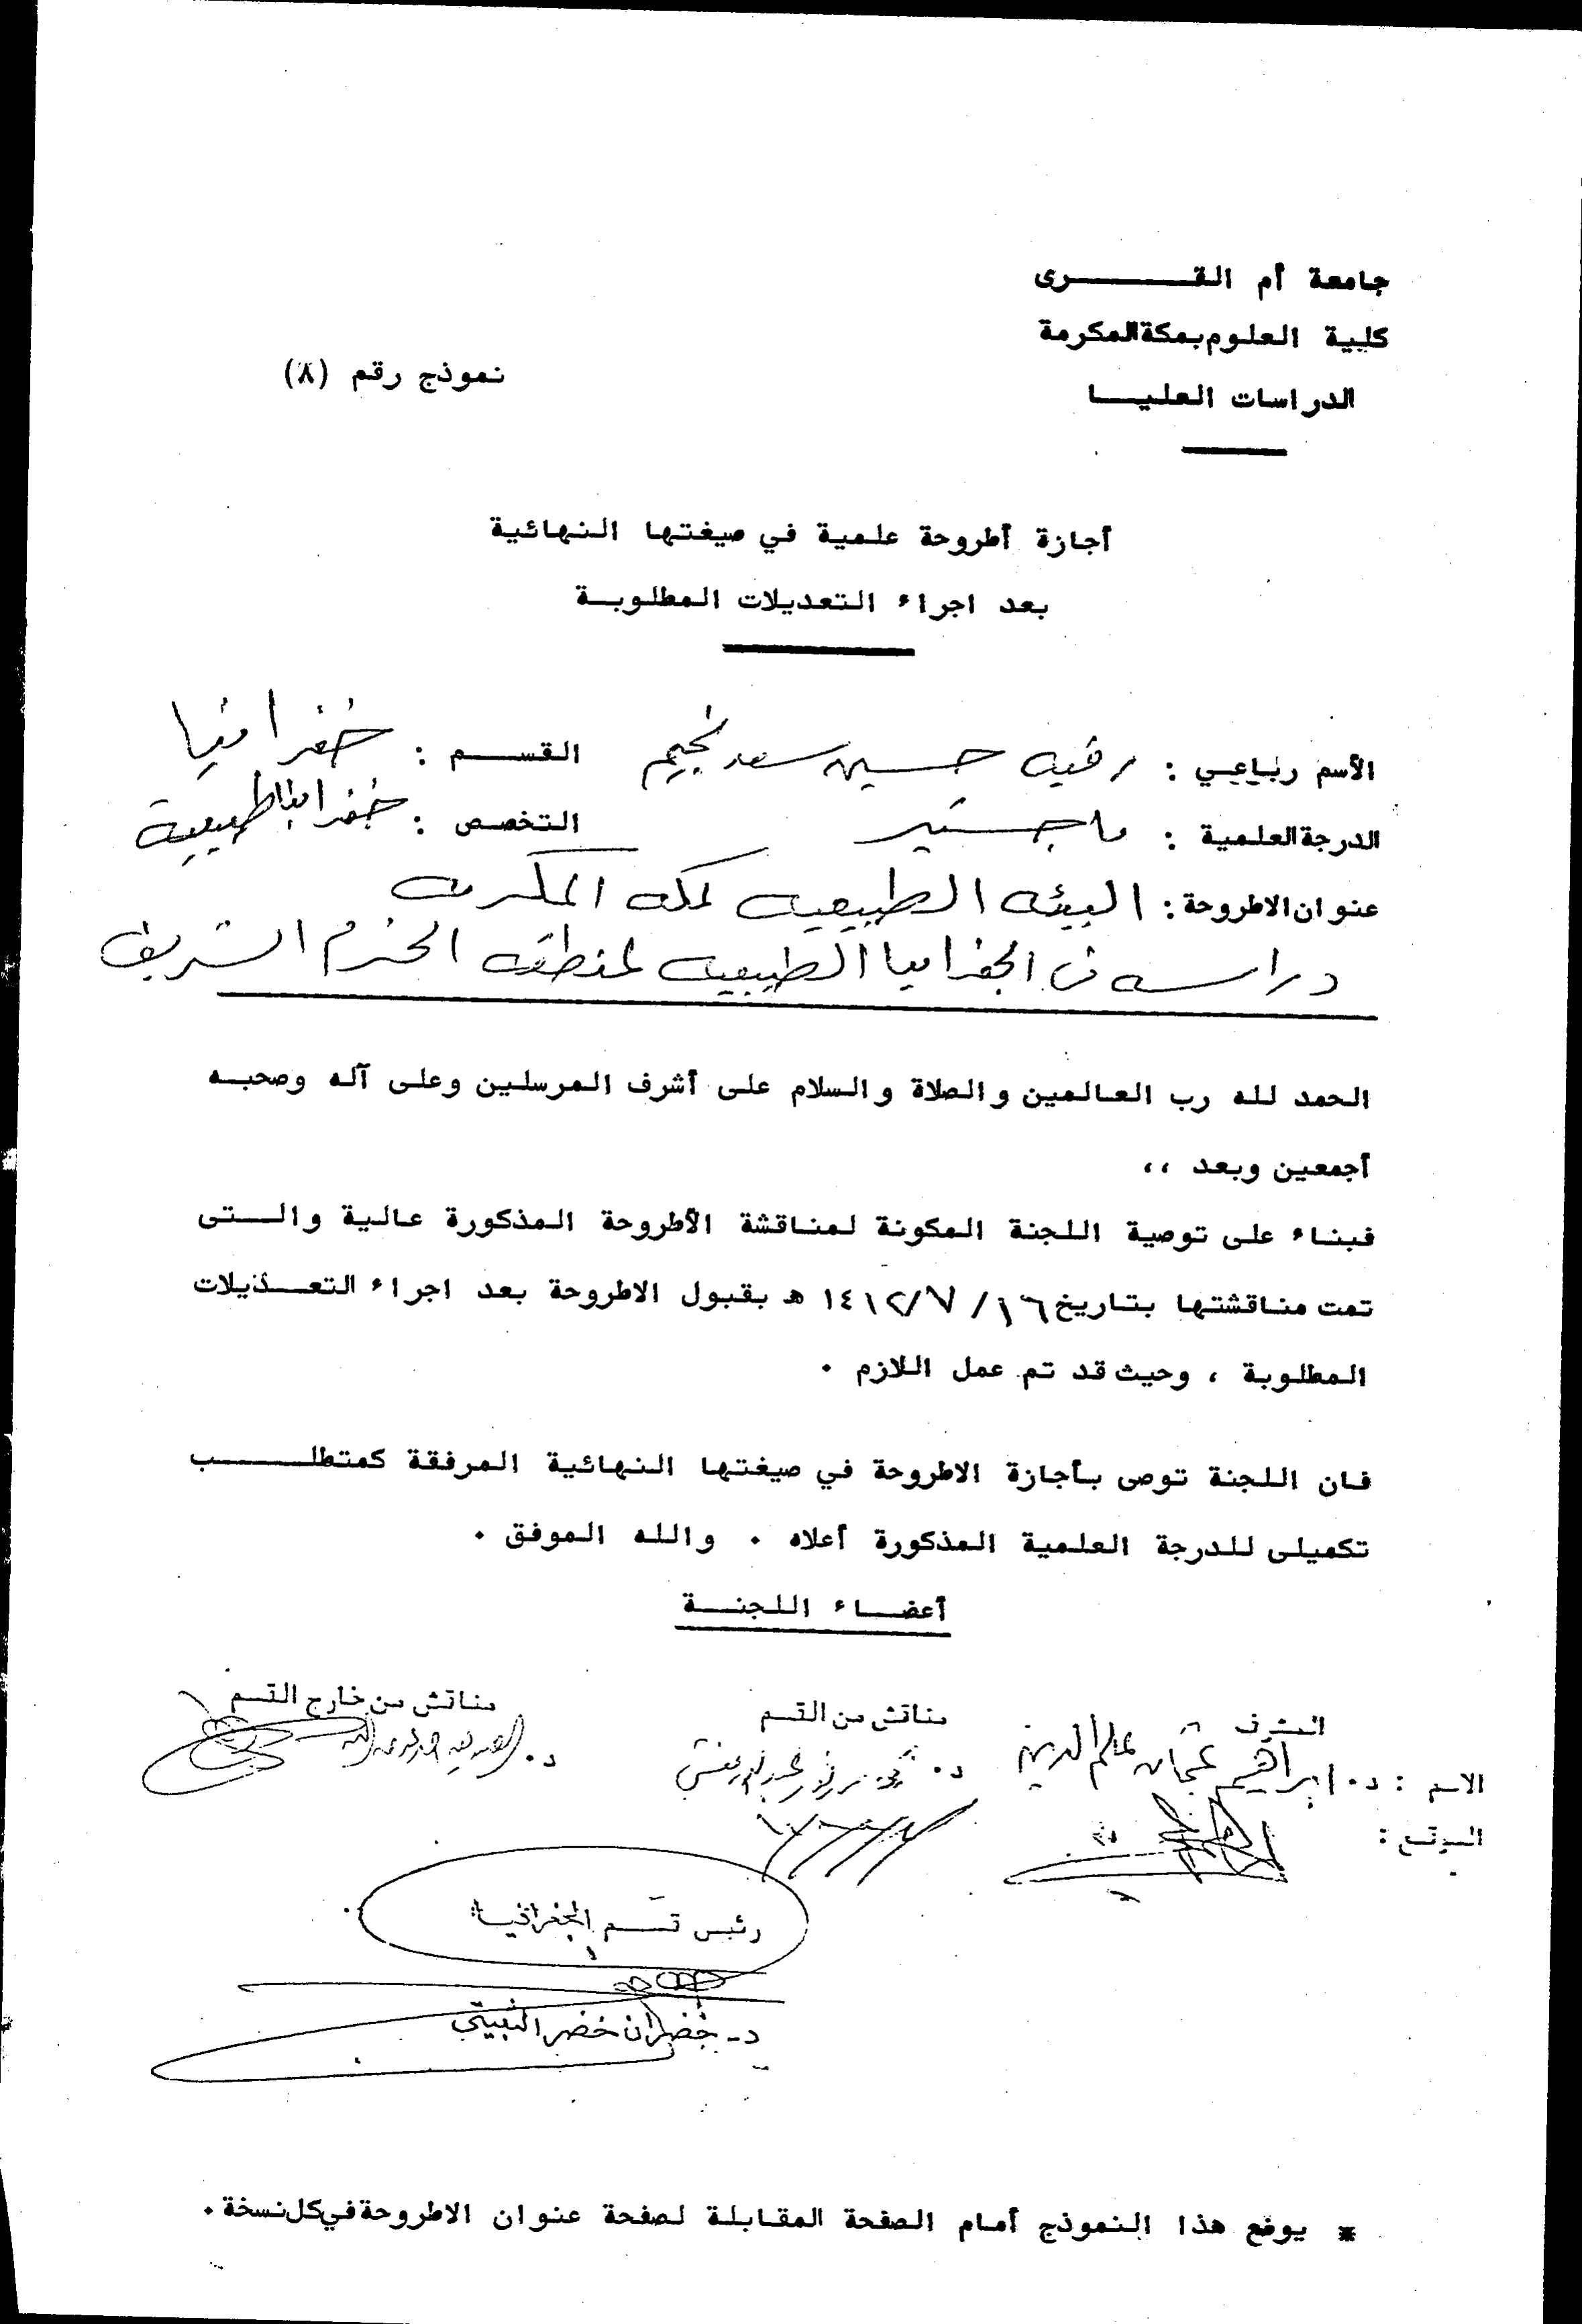 جامعة أم القـــــرى
كلية العلوم بمكة المكرمة
الدراسات العليــا
نموذج رقم (٨)
أجازة أطروحة علمية في صيغتها النهائية
بعد اجراء التعديلات المطلوبـة
الأسم رباعي : رقيه حسين سعد نجيم القســم : جغرافيا
الدرجة العلمية : ماجستير التخصص : جغرافيا طبيعية
عنوان الاطروحة : البيئه الطبيعيه لمكه المكرمه
دراسه في الجغرافيا الطبيعيه لمنطقه الحرم الشريف
الحمد لله رب العالمين والصلاة والسلام على أشرف المرسلين وعلى آله وصحبـه
أجمعين وبعد ،،
فبناء على توصية اللجنة المكونة لمناقشة الأطروحة المذكورة عالية والــتى
تمت مناقشتها بتاريخ ١٦ / ٧ / ١٤١٢ هـ بقبول الاطروحة بعد اجراء التعـديلات
المطلوبة ، وحيث قد تم عمل اللازم .
فان اللجنة توصى بأجازة الاطروحة في صيغتها النهائية المرفقة كمتطلــــب
تكميلى للدرجة العلمية المذكورة أعلاه . والله الموفق .
أعضــاء اللجنــة
المشرف مناقش من القسم مناقش من خارج القسم
الاسم : د. ابراهيم عثمان علم الدين د. د.
التوقيع :
رئيس قسم الجغرافيا
د- خضران خضر الثبيتي
* يوقع هذا النموذج أمام الصفحة المقابلة لصفحة عنوان الاطروحة في كل نسخة .